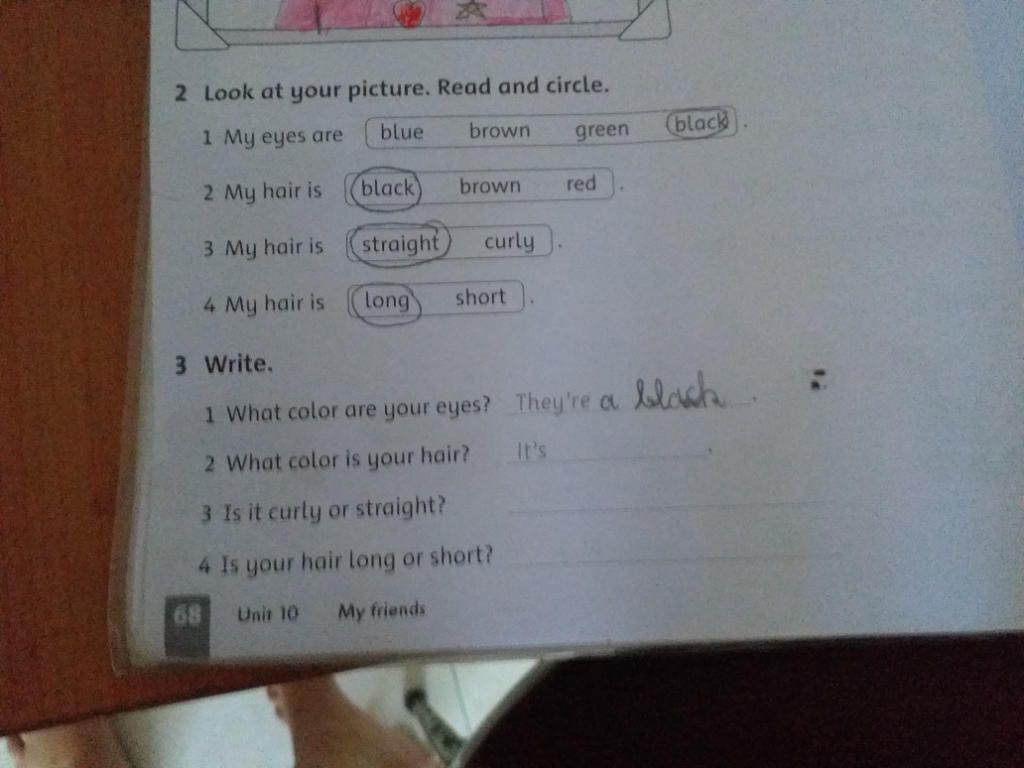 2 Look at your picture. Read and circle.
1 My eyes are blue brown green black .
2 My hair is black brown red .
3 My hair is straight curly .
4 My hair is long short .
3 Write.
1 What color are your eyes? They're a black .
2 What color is your hair? It's .
3 Is it curly or straight?
4 Is your hair long or short?
68 Unit 10 My friends